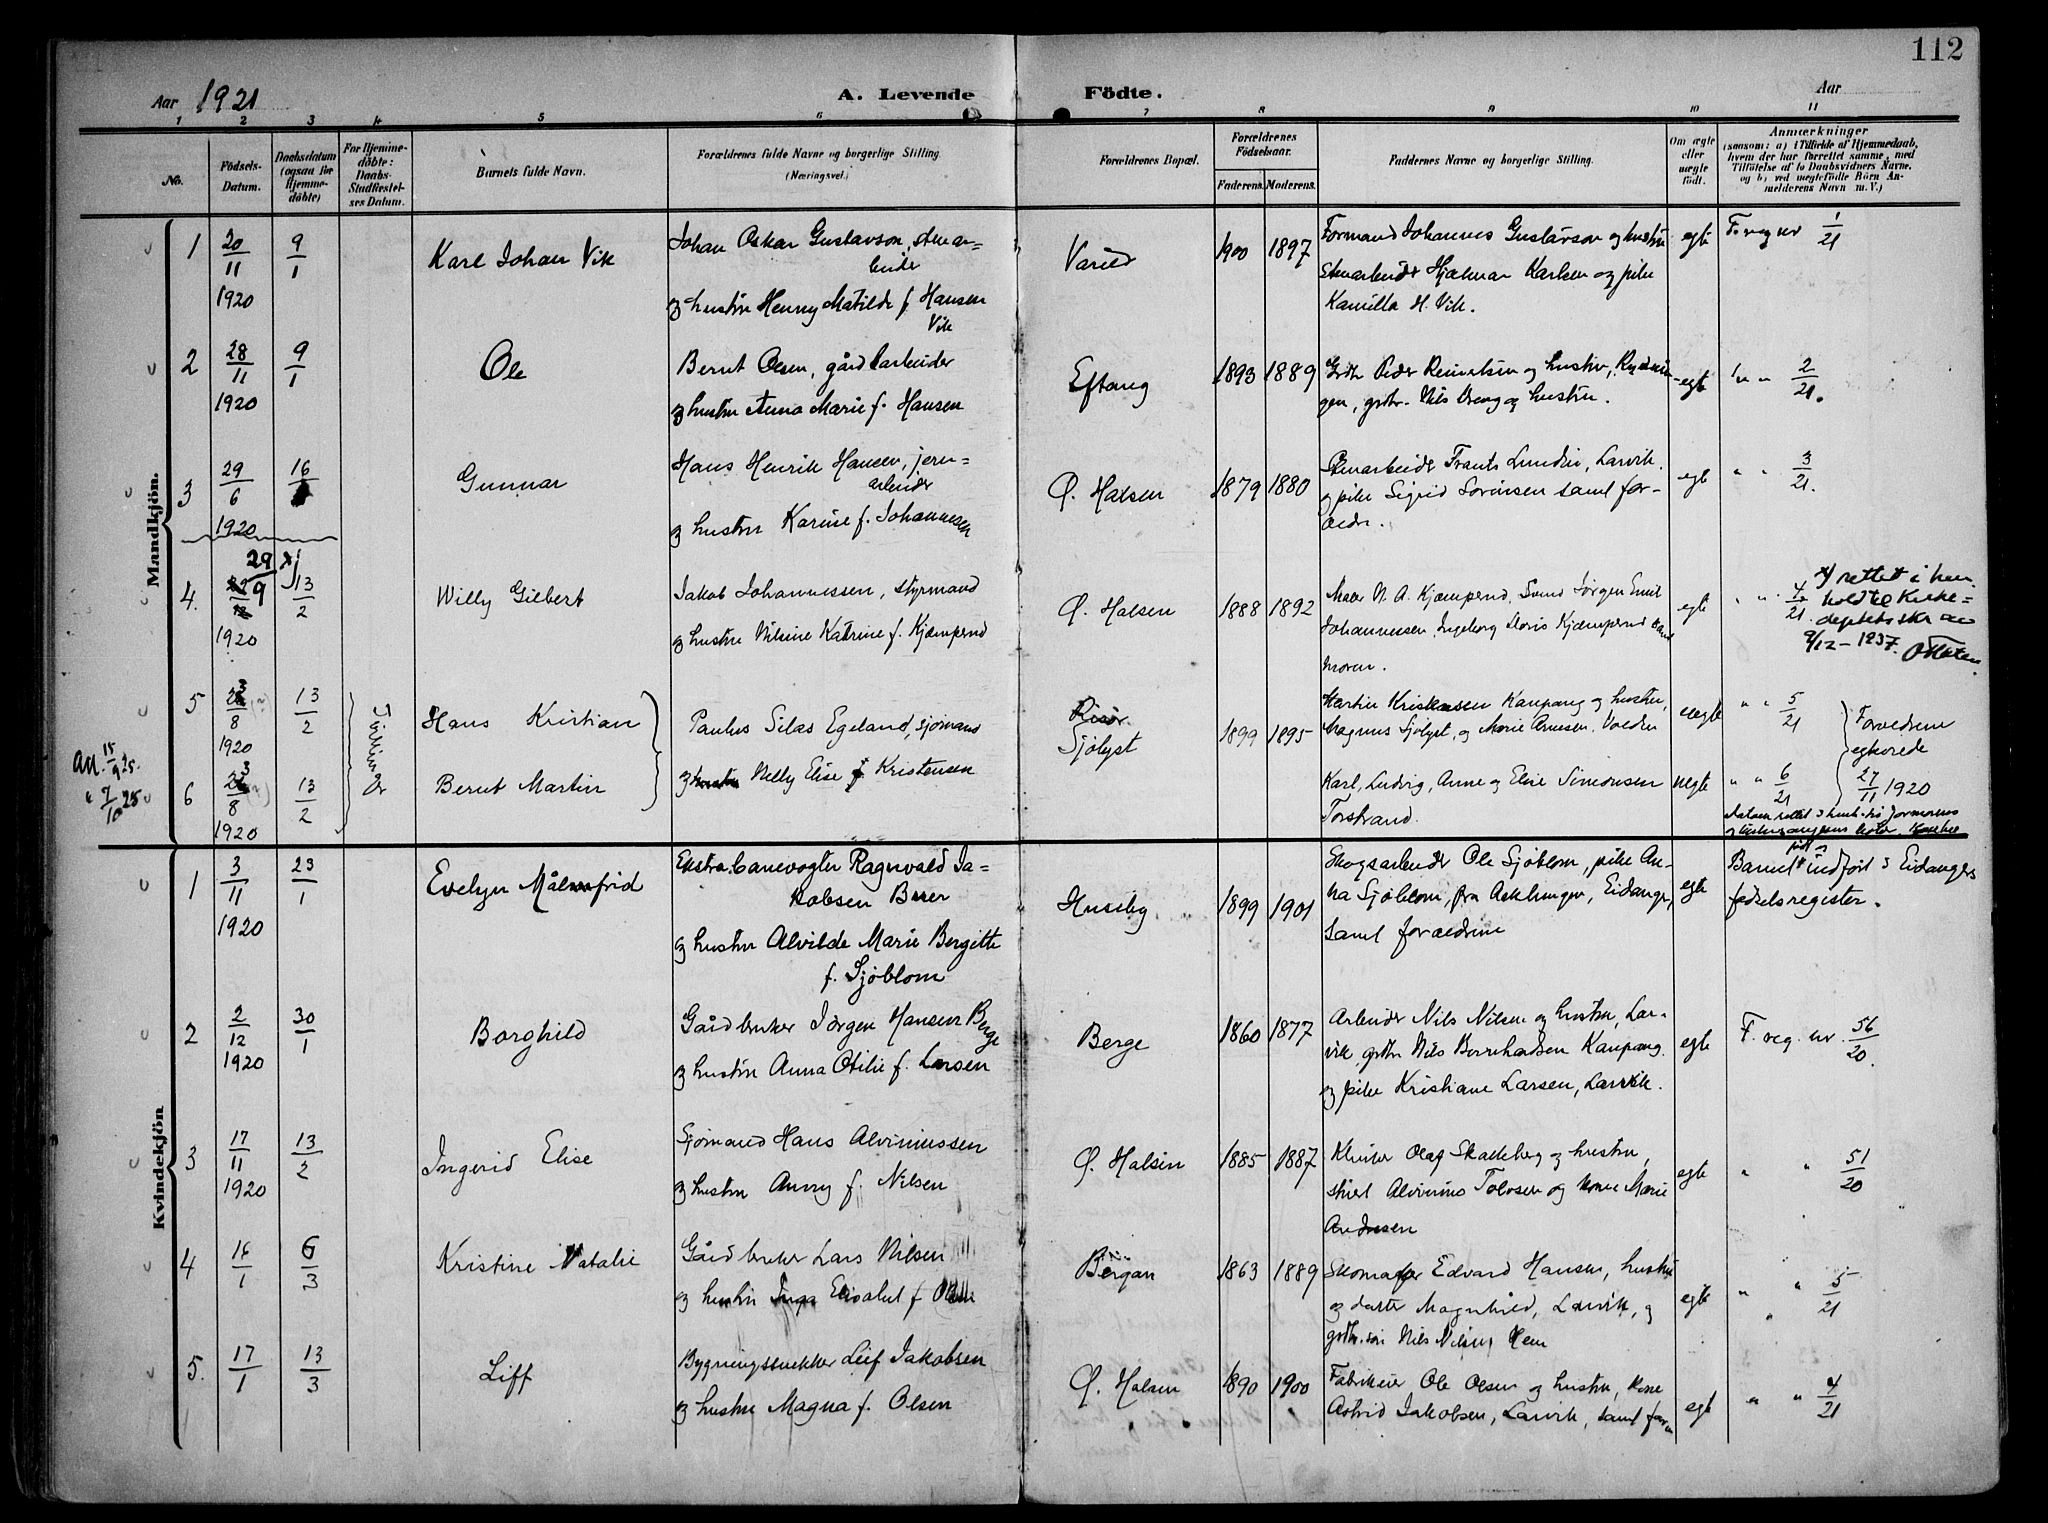 112
Aar 1921 A. Levende Födte. Aar
1 2 3 4 5 6 7 8 9 10 11
No.
Födsels-Datum.
Daabsdatum (ogsaa for Hjemme-döbte)
For Hjemme-döbte: Daabs-Stadfæstel-ses Datum.
Barnets fulde Navn.
Forældrenes fulde Navne og borgerlige Stilling
(Næringsvei.)
Forældrenes Bopæl.
Forældrenes Födselsaar.
Faderens. Moderens.
Faddernes Navne og borgerlige Stilling.
Om ægte eller uægte födt.
Anmærkninger
(saasom: a) i Tilfælde af Hjemmedaab,
hvem der har forrettet samme, med
Tilföielse af to Daabsvidners Navne,
og b) ved uægtefödte Börn An-
melderens Navn m. V.)
Mandkjön.
1 20/11 1920 9/1 Karl Johan Vik
Johan Oskar Gustavson, stenar-
beider
og hustru Henny Matilde f. Hansen
Vik
Varild 1900 1897
Formand Johannes Gustavson og hustru
Stenarbeider Hjalmar Karlsen og pike
Kamilla H. Vik.
egte F. reg nr 1/21
2 28/11 1920 9/1 Ole
Bernt Olsen, gårdbarbeider
og hustru Anna Marie f. Hansen
Eftang 1893 1889
Peder og hustru,
gen, grdbr. Nils og hustru.
egte " " 2/21.
3 29/6 1920 16 Gunnar
Hans Henrik Hansen, jern-
arbeider
og hustru Karine f. Johannesen
Ø. Halsen 1879 1880
Stenarbeider Frants Lundin, Larvik.
og pike Sigrid Sørensen samt for-
ældr.
egte " " 3/21.
4. 29/9 1920 x) 13/2 Willy Gilbert
Jakob Johannessen, styrmand
og hustru Nilsine Katrine f. Kjæmperud
Ø. Halsen 1888 1892
Maler N. A. Kjæmperud, Svend Jørgen Emil
Johannessen, Ingeborg Doris Kjæmperud samt
moren.
egte " " 4/21.
x) rettet i hen-
hold til Kirke-
deptets skr av
9/12 - 1937.
5 3/8 1920 13/2 Tvillinger Hans Kristian
Paulus Silas Egeland, sjømand
og Nelly Elise Kristensen
Risør
Sjølyst 1899 1895
Martin Kristensen Kaupang og hustru,
Magnus Sjølyst, og Marie Arnesen. Volden
uegte " " 5/21
Forældrene
egteviede
27/11 1920
An. 15/9 25.
" 7/10 25
6 3/8 1920 13/2 Bernt Martin
Karl, Ludvig, Anne og Elise Simonsen
Torstrand.
uegte " " 6/21
Kvindekjön
1 3/11 1920 23/1 Evelyn Målfrid
Ekstra banevogter Ragnvald Ja-
kobsen Buer
og hustru Alvilde Marie Bergitte
f. Sjöblom
Huseby 1899 1901
Skogsarbeider Ole Sjöblom, pike An-
na Sjöblom, fra Eidanger,
samt forældrene
egte Barnet indført i Eidangers
fødselsregister.
2 2/12 1920 30/1 Borghild
Gårdbruker Jørgen Hansen Berge
og hustru Anna Otilie f. Larsen
Berge 1860 1877
Arbeider Nils Nilsen og hustru, Lar-
vik, grdbr Nils Berntsen Kaupang.
og pike Kristiane Larsen, Larvik.
egte F. reg. nr. 56/20.
3 17/11 1920 13/2 Ingerid Elise
Sjømand Hans Alvinussen
og hustru Anny f. Nilsen
Ø. Halsen 1885 1887
Olaf Skalleberg og hustru,
Alvinus Tolvsen og kone Marie
Andresen
egte " " 51/20
4 16/1 6/3 Kristine Natalie
Gårdbruker Lars Nilsen
og hustru Inga Elisabet f.
Bergan 1863 1889
Skomaker Edvard Hansen, hustru
og datter Magnhild, Larvik, og
grdbr. søn Nils Nilsen, Hem
egte " " 5/21
5. 17/1 13/3 Liff
Bygningssnekker Leif Jakobsen
og hustru Magna f. Olsen
Ø. Halsen 1890 1900
Fabrikeier Ole Olsen og hustru,
Astrid Jakobsen, Larvik, samt faren
egte " " 4/21